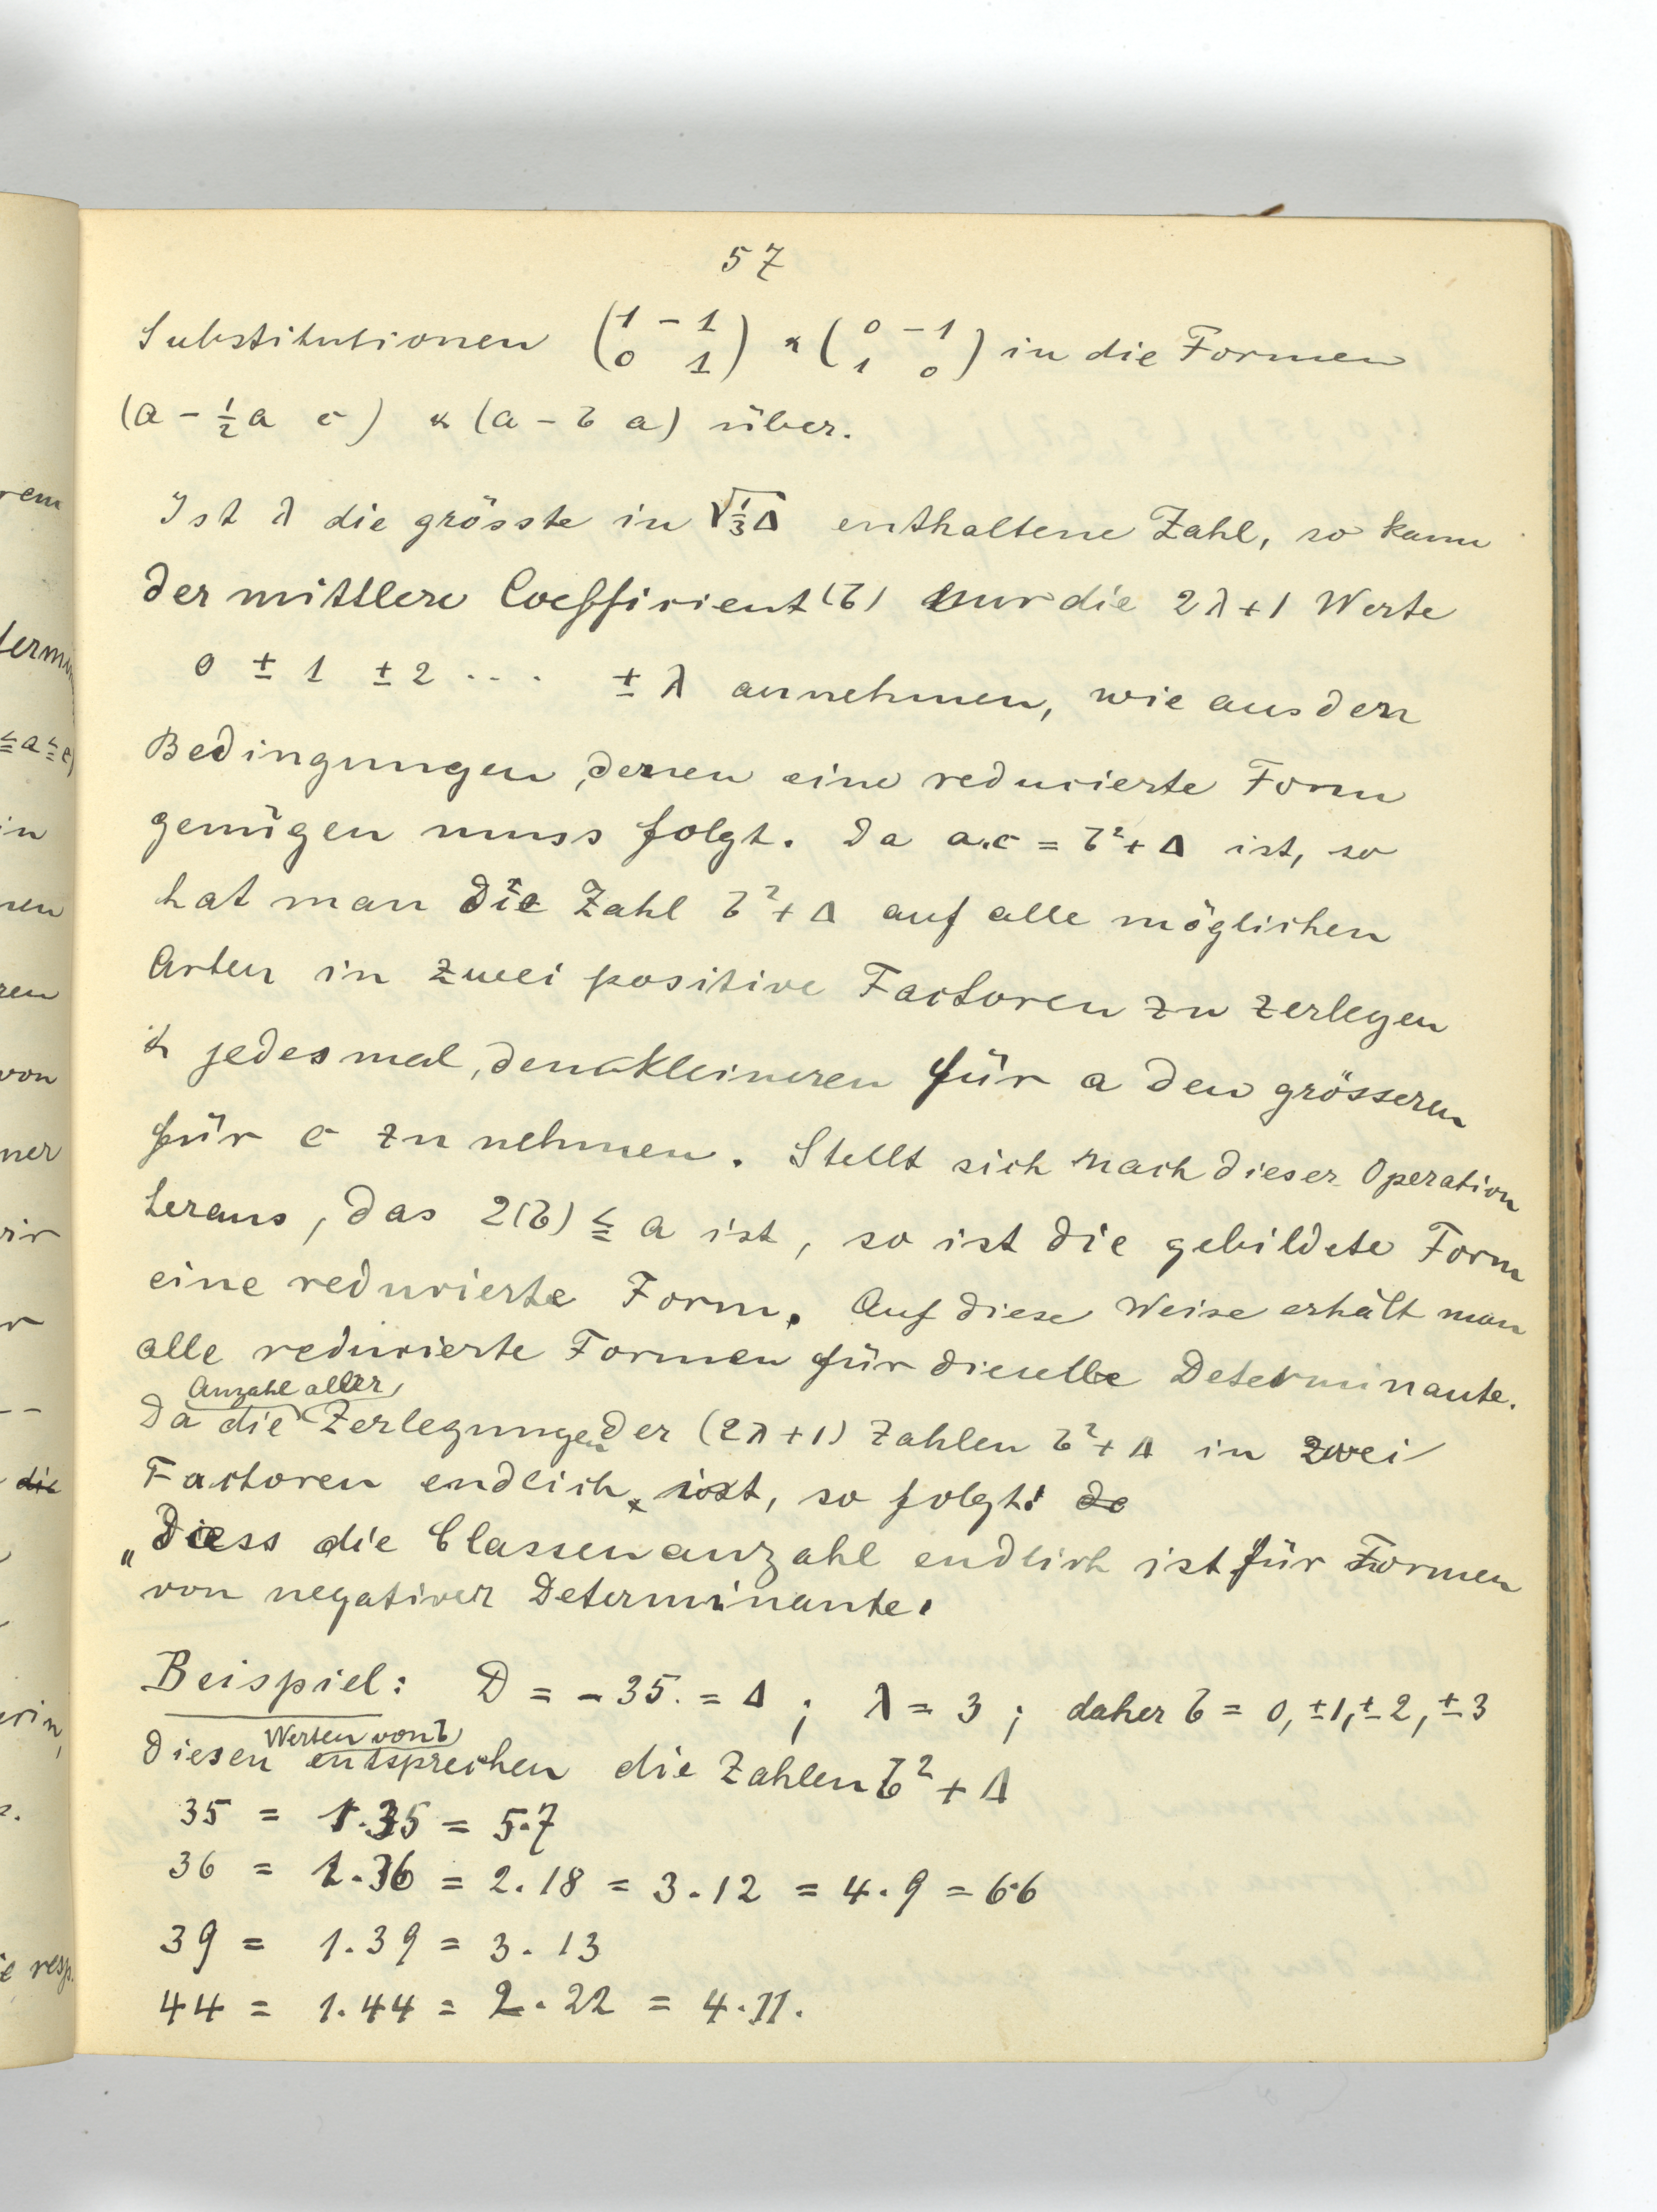 57
Substitutionen (1 -1 0 1) & (0 -1 1 0) in die Formen
(a - ½a c) & (a - b a) über.
Ist λ die grösste in √⅓Δ enthaltene Zahl, so kann
der mittlere Coefficient (b) nur die 2λ+1 Werte
0 ± 1 ± 2 ... ± λ annehmen, wie aus den
Bedingungen, denen eine reducierte Form
genügen muss folgt. Da a.c = b²+Δ ist, so
hat man die Zahl b²+Δ auf alle möglichen
Arten in zwei positive Factoren zu zerlegen
& jedesmal, den kleineren für a den grösseren
für c zu nehmen. Stellt sich nach dieser Operation
heraus, das 2(b) ≦ a ist, so ist die gebildete Form
eine reducierte Form. Auf diese Weise erhält man
alle reducierte Formen für dieselbe Determinante.
Anzahl aller
Da die Zerlegungen der (2λ+1) Zahlen b²+Δ in zwei
Factoren endlich ist, so folgt:
„Diess die Classenanzahl endlich ist für Formen
von negativer Determinante.
Beispiel: D = -35. = Δ ; λ = 3 ; daher b = 0, ±1, ±2, ±3
Werten von b
Diesen entsprechen die Zahlen b² + Δ
35 = 1.35 = 5.7
36 = 1.36 = 2.18 = 3.12 = 4.9 = 6.6
39 = 1.39 = 3.13
44 = 1.44 = 2.22 = 4.11.